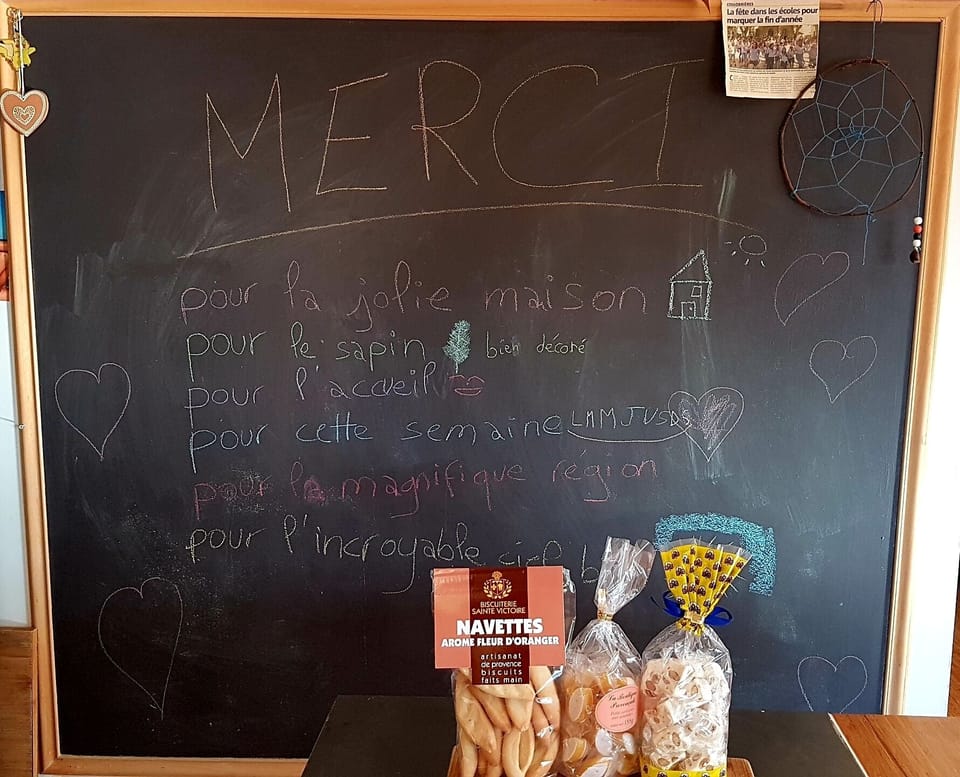 COLLOBRIÈRES
La fête dans les écoles pour
marquer la fin d'année
MERCI
pour la jolie maison
pour le sapin bien décoré
pour l'accueil
pour cette semaine LMMJVSDS
pour la magnifique région
pour l'incroyable ciel
BISCUITERIE
SAINTE VICTOIRE
NAVETTES
AROME FLEUR D'ORANGER
artisanat
de provence
biscuits
faits main